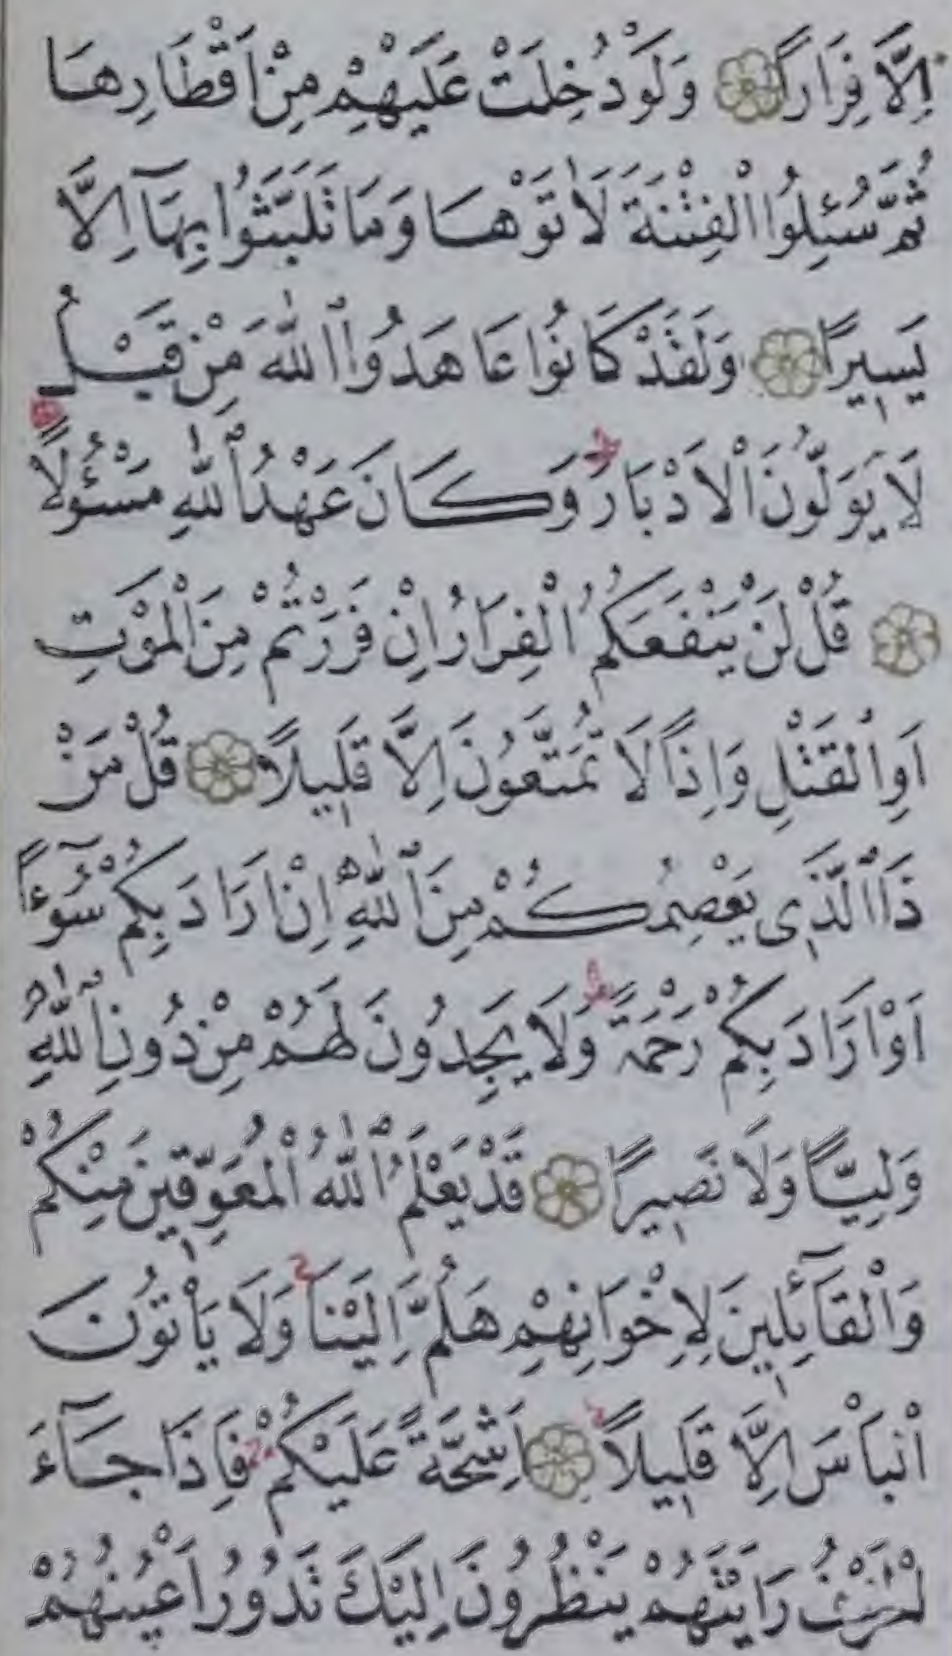 اِلَّا فِرَارًا ۝ وَلَوْ دُخِلَتْ عَلَيْهِمْ مِنْ اَقْطَارِهَا
ثُمَّ سُئِلُوا الْفِتْنَةَ لَاٰتَوْهَا وَمَا تَلَبَّثُوا بِهَٓا اِلَّا
يَسِيرًا ۝ وَلَقَدْ كَانُوا عَاهَدُوا اللّٰهَ مِنْ قَبْلُ
لَا يُوَلُّونَ الْاَدْبَارَ وَكَانَ عَهْدُ اللّٰهِ مَسْؤُلًا
۝ قُلْ لَنْ يَنْفَعَكُمُ الْفِرَارُ اِنْ فَرَرْتُمْ مِنَ الْمَوْتِ
اَوِ الْقَتْلِ وَاِذًا لَا تُمَتَّعُونَ اِلَّا قَلِيلًا ۝ قُلْ مَنْ
ذَا الَّذِي يَعْصِمُكُمْ مِنَ اللّٰهِ اِنْ اَرَادَ بِكُمْ سُٓوءًا
اَوْ اَرَادَ بِكُمْ رَحْمَةً وَلَا يَجِدُونَ لَهُمْ مِنْ دُونِ اللّٰهِ
وَلِيًّا وَلَا نَصِيرًا ۝ قَدْ يَعْلَمُ اللّٰهُ الْمُعَوِّقِينَ مِنْكُمْ
وَالْقَٓائِلِينَ لِاِخْوَانِهِمْ هَلُمَّ اِلَيْنَا وَلَا يَأْتُونَ
الْبَأْسَ اِلَّا قَلِيلًا ۝ اَشِحَّةً عَلَيْكُمْ فَاِذَا جَٓاءَ
الْخَوْفُ رَاَيْتَهُمْ يَنْظُرُونَ اِلَيْكَ تَدُورُ اَعْيُنُهُمْ